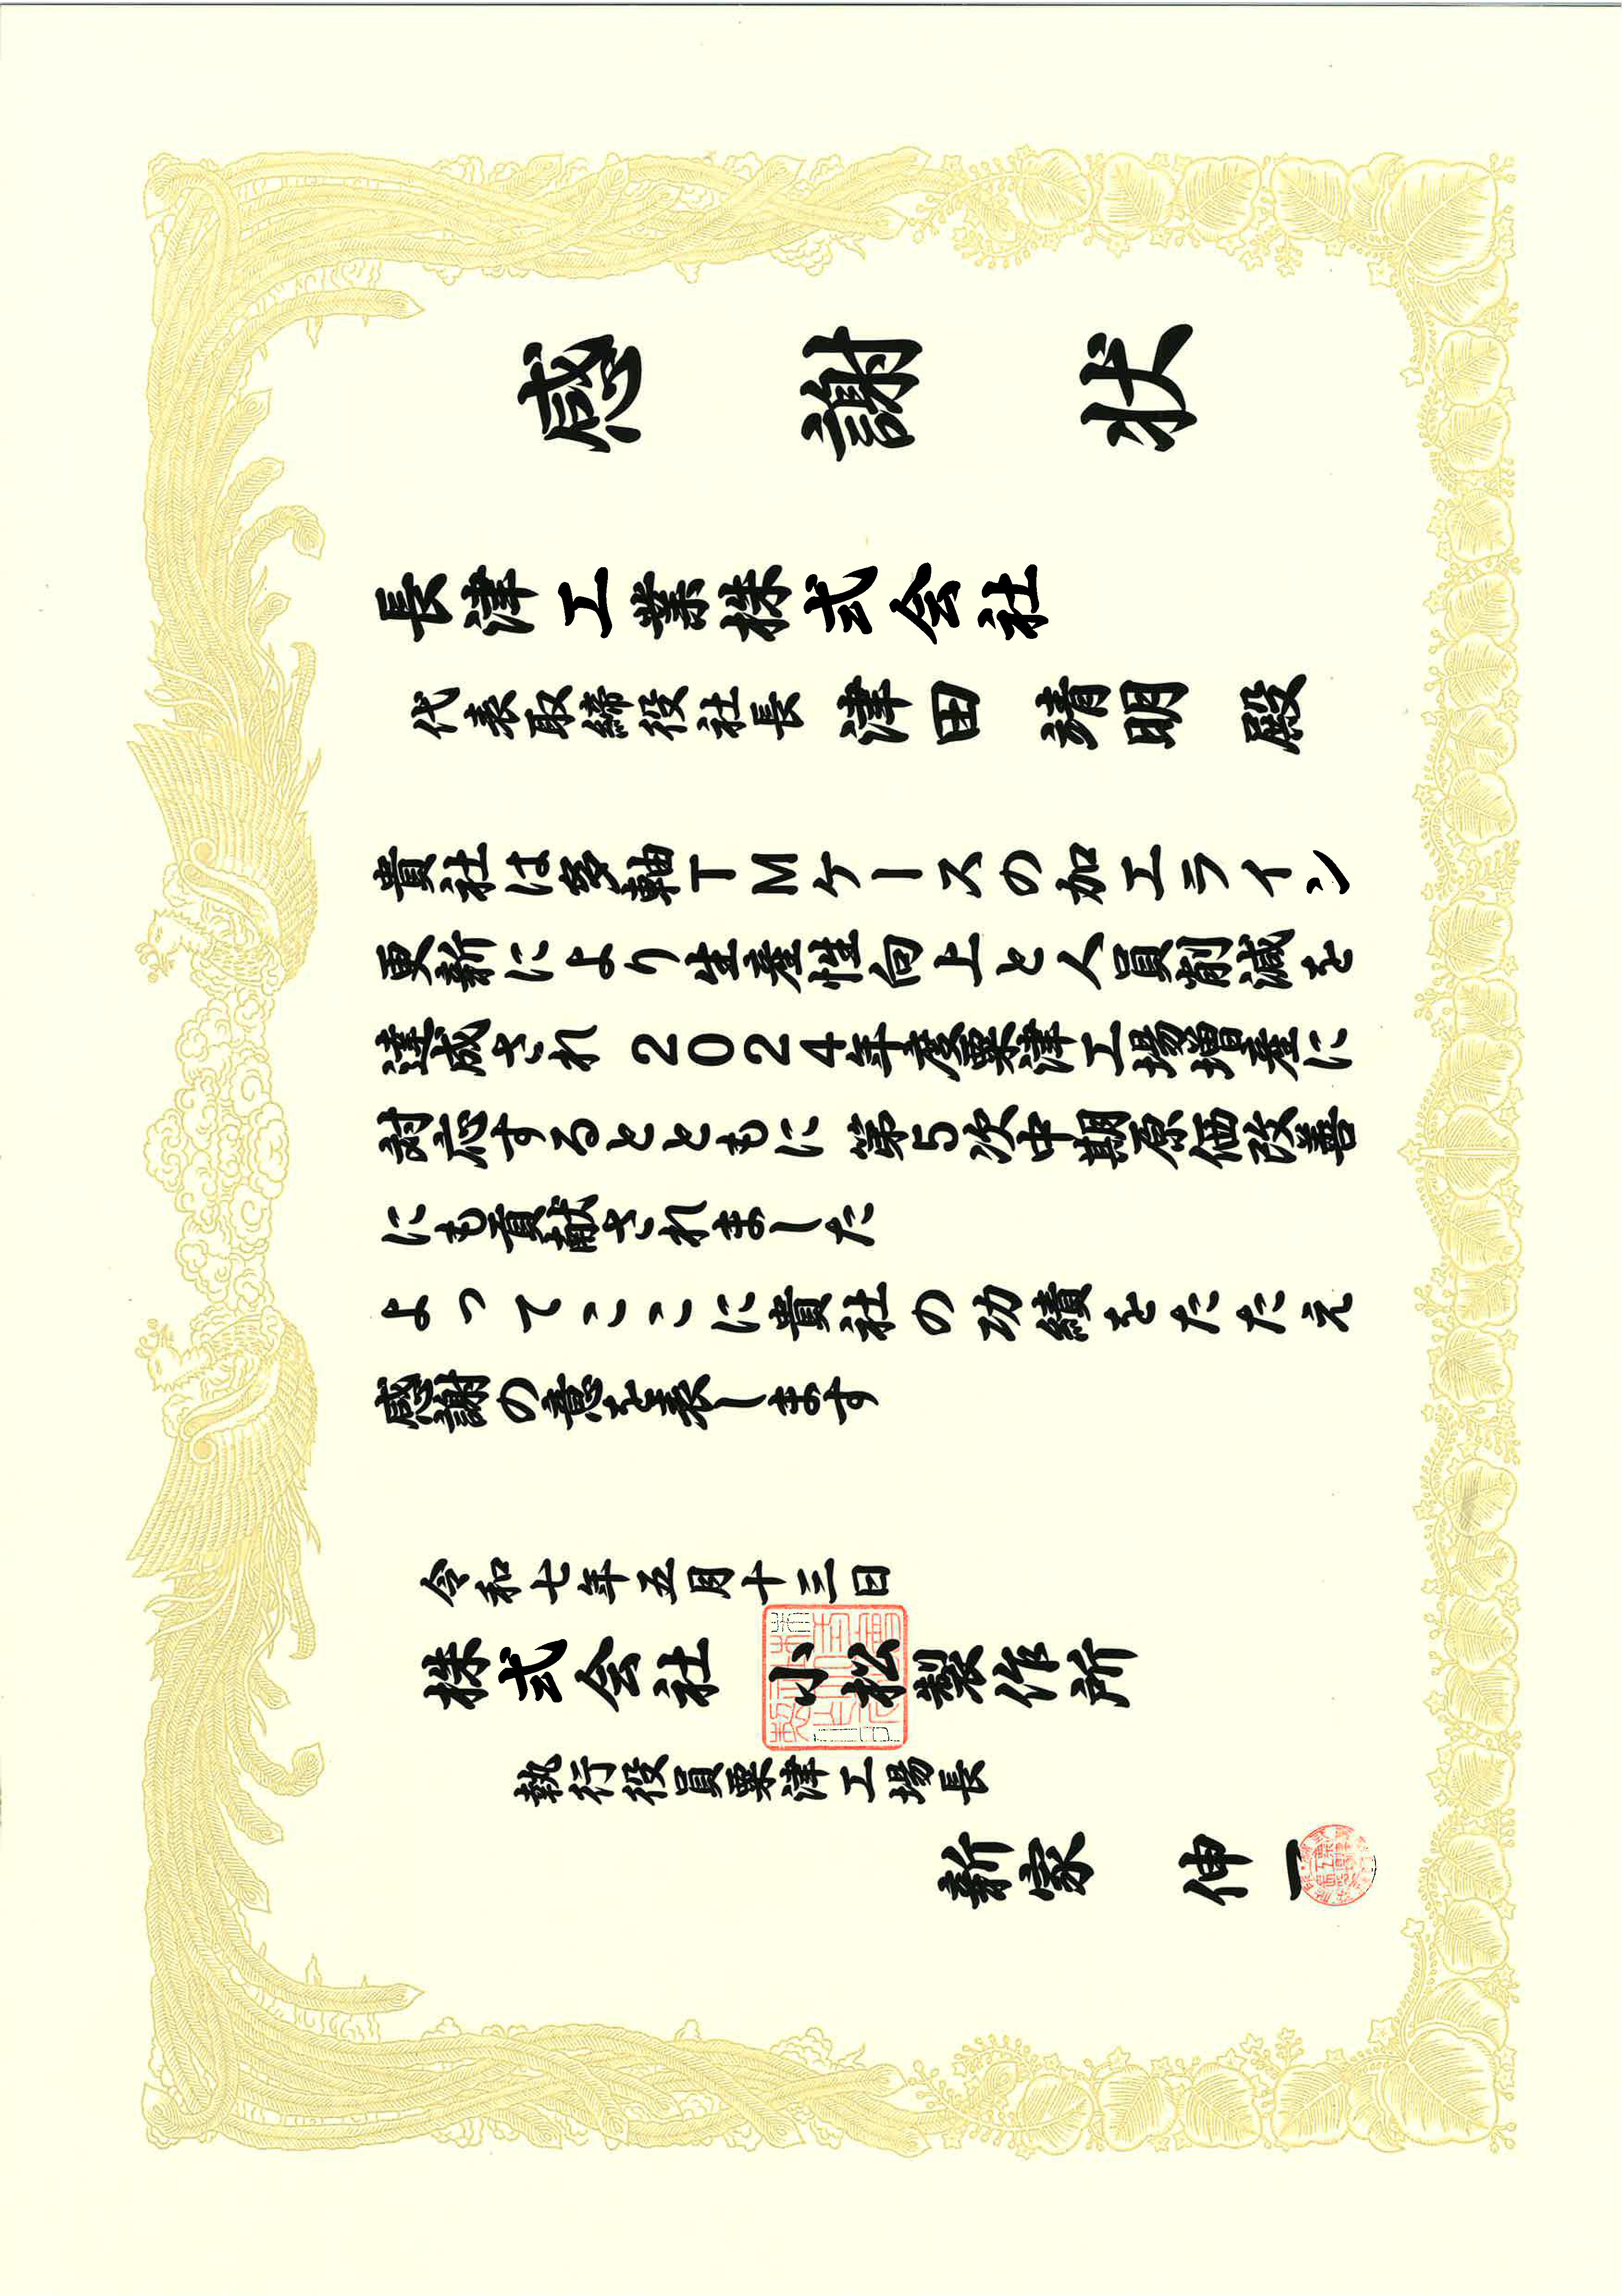 感謝状
長津工業株式会社
代表取締役社長 津田 靖明 殿
貴社は多軸TMケースの加工ライン
更新により生産性向上と人員削減を
達成され 2024年度粟津工場増産に
対応するとともに 第5次中期原価改善
にも貢献されました
よってここに貴社の功績をたたえ
感謝の意を表します
令和七年五月十三日
株式会社 小松製作所
執行役員粟津工場長
新家 伸一